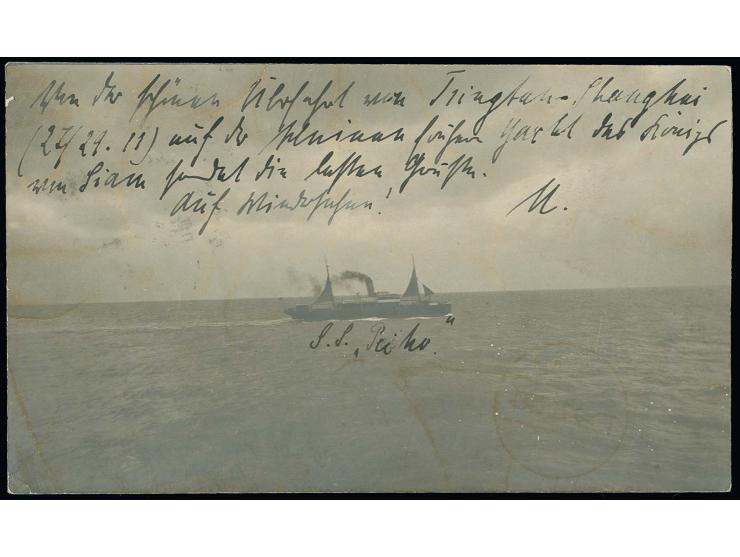 Von der schönen Überfahrt von Tsingtau-Shanghai
(27/29. 11) auf der kleinen früheren Yacht des Königs
von Siam sendet die besten Grüße.
Auf Wiedersehen! U.
S.S. „Peiho."